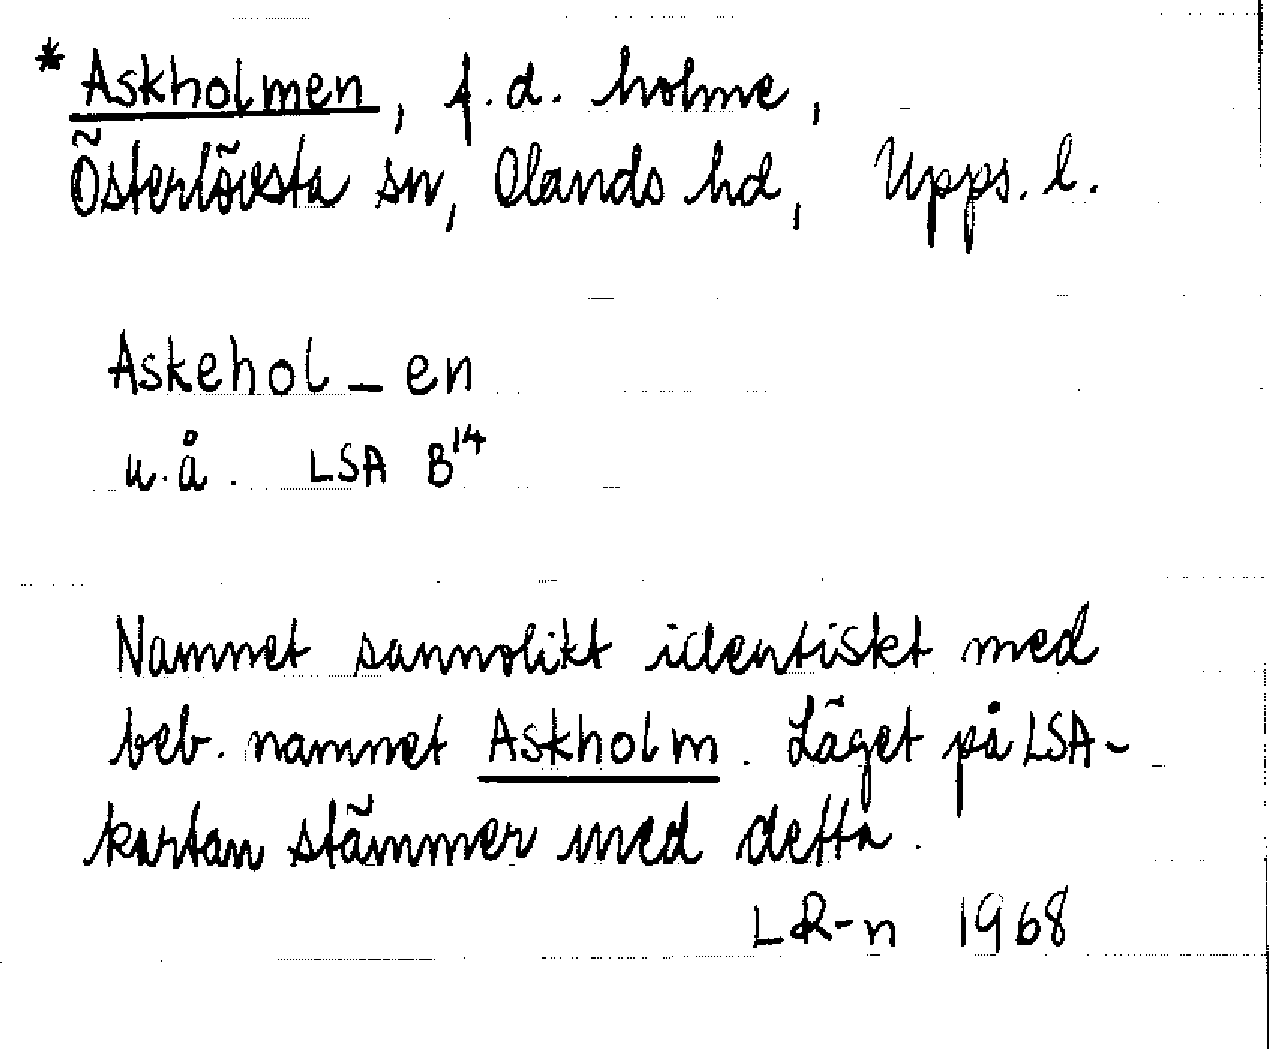 * Askholmen, f.d. holme,
Österlövsta sn, Olands hd, Upps. l.
Askehol_en
u.å. LSA B¹⁴
Namnet sannolikt identiskt med
beb. namnet Askholm. Läget på LSA-
kartan stämmer med detta.
LR-n 1968